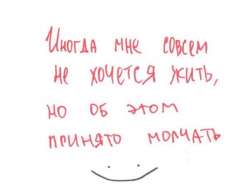 Иногда мне совсем
не хочется жить,
но об этом
принято молчать